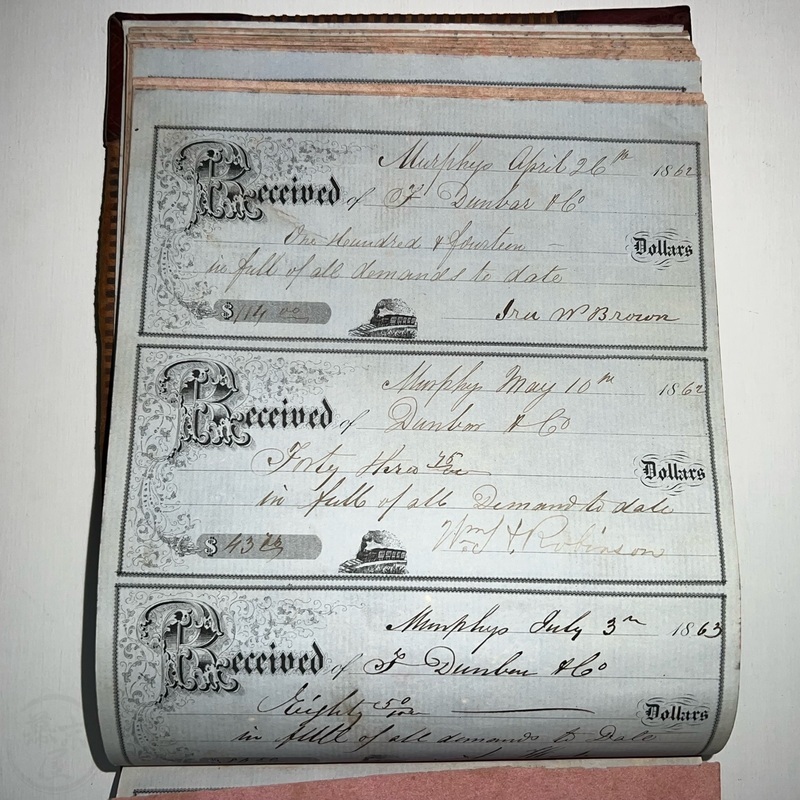 Murphys April 26th 1862
Received of F Dunbar & Co
One Hundred & fourteen –
Dollars
in full of all demands to date
$114.00
Ira W Brown
Murphys May 10th 1862
Received of Dunbar & Co
Forty three
Dollars
in full of all Demand to date
$43
Robinson
Murphys July 3 1863
Received of F Dunbar & Co
Eighty 50/100
Dollars
in full of all demands to Date